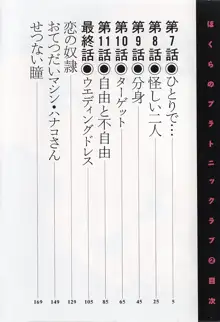 ぼくらのプラトニックラブ②目次
第7話●ひとりで… 5
第8話●怪しい二人 25
第9話●分身 45
第10話●ターゲット 65
第11話●自由と不自由 85
最終話●ウエディングドレス 105
恋の奴隷 129
おてつだいマシン・ハナコさん 149
せつない瞳 169